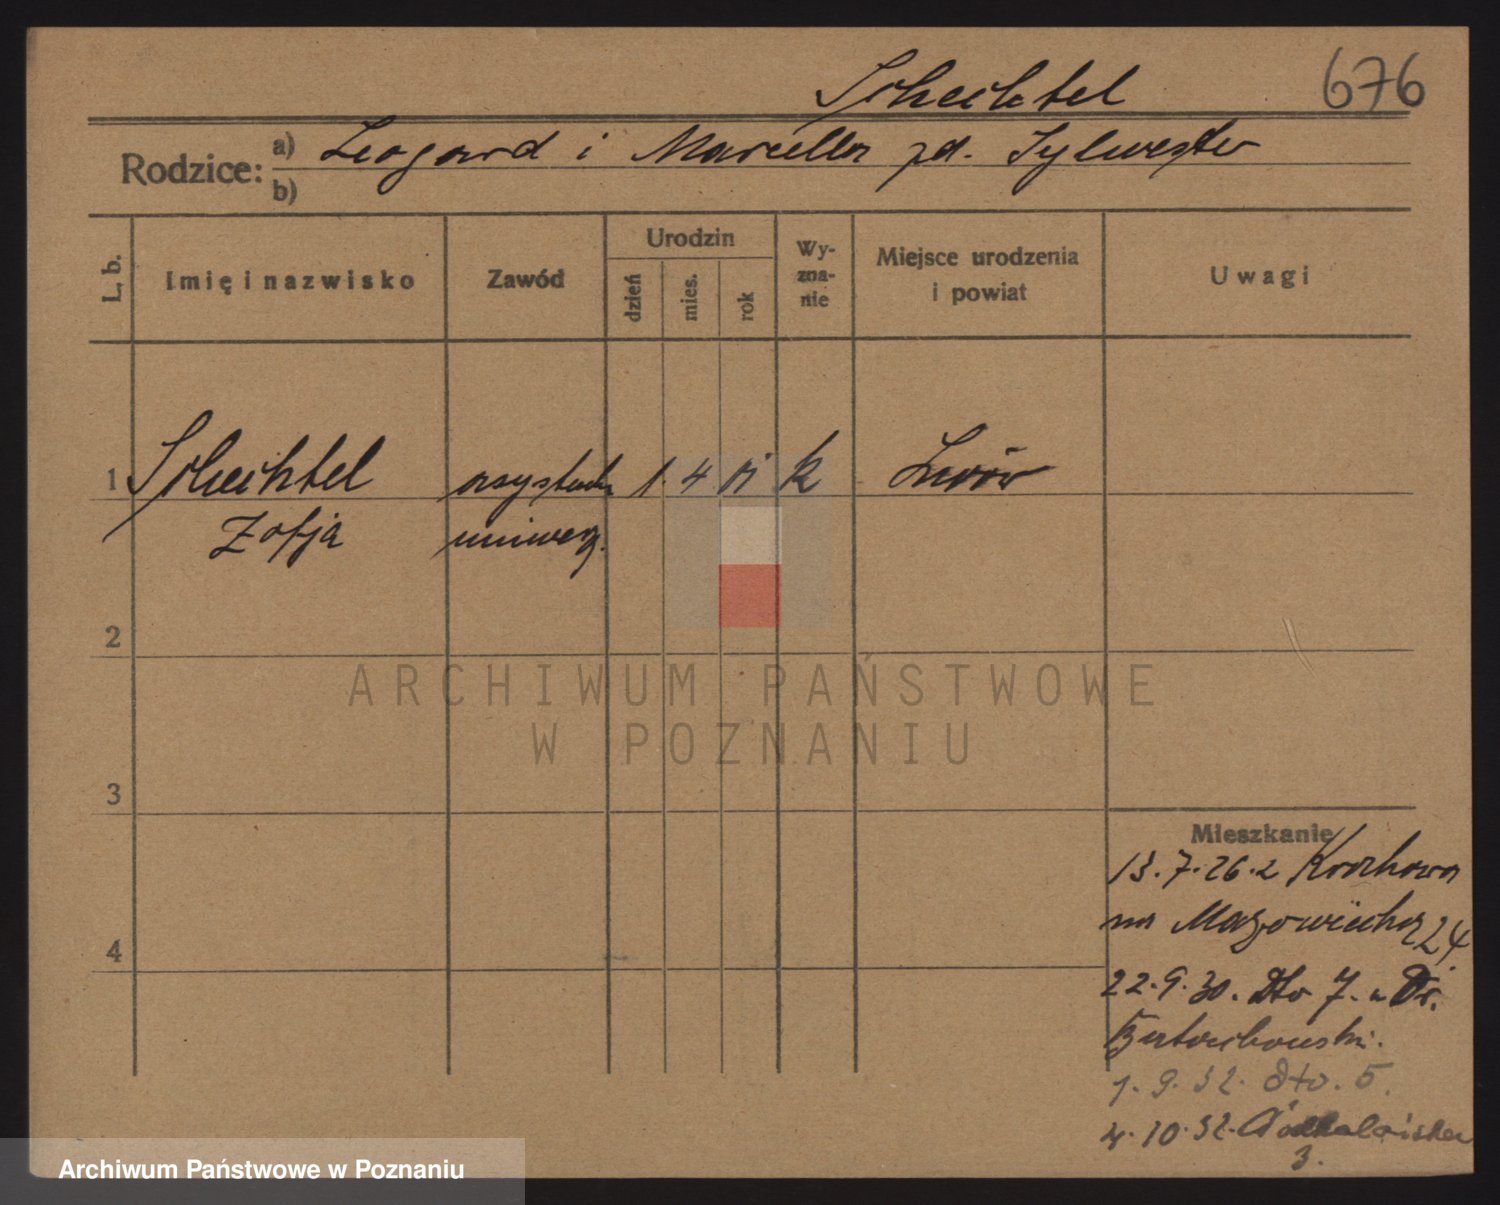 Schechtel 676
Rodzice: a) Leogard i Marcella zd. Sylwester
b)
L. b. Imię i nazwisko Zawód Urodzin dzień mies. rok Wy-zna-nie Miejsce urodzenia i powiat Uwagi
1 Schechtel asystentk 1. 4 k Lwów
Zofja uniwerz.
2
3
4
Mieszkanie
13.7.26.
Mazowiecka 24
22.9.30. Dto 7. u Dr.
1.9.32. dto. 5.
4.10.32.
3.
ARCHIWUM PAŃSTWOWE
W POZNANIU
Archiwum Państwowe w Poznaniu